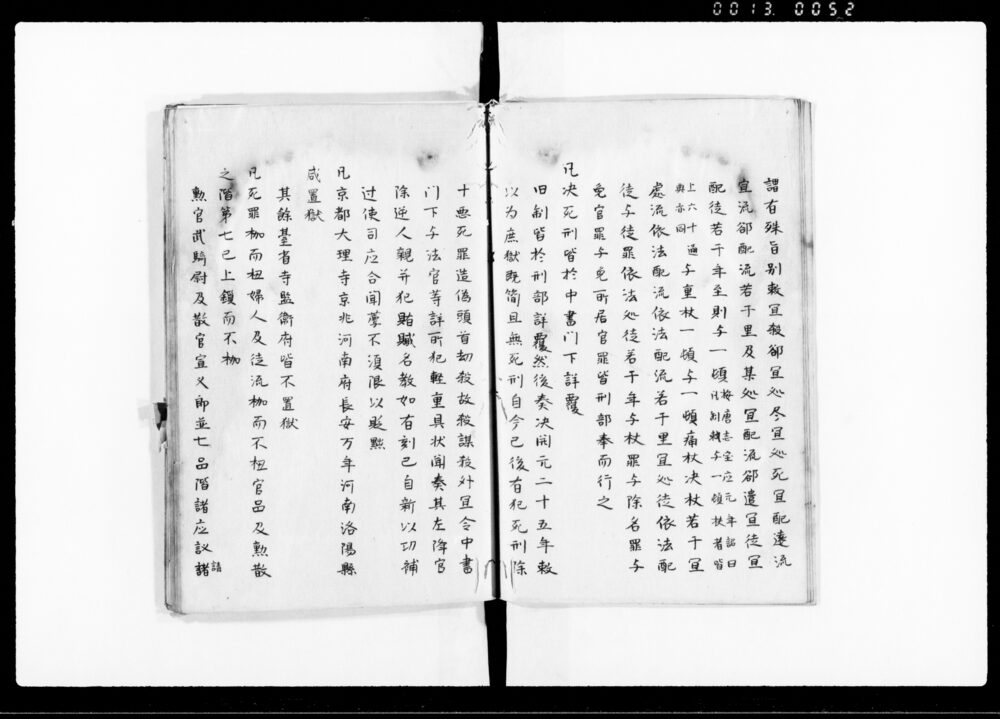 0013. 0052
謂有殊旨別敕宜殺卻宜処尽宜処死宜配遠流
宜流卻配流若干里及某処宜配流卻遣宜徒宜
配徒若干年至到与一頓 按唐志宝应元年詔曰凡制敕与一頓杖者皆
上六十通与重杖一頓与一頓痛杖決杖若干宜
與亦同
處流依法配流依法配流若干里宜処徒依法配
徒与徒罪依法処徒若干年与杖罪与除名罪与
免官罪与免所居官罪皆刑部奉而行之
凡决死刑皆於中書門下詳覆
旧制皆於刑部詳覆然後奏决開元二十五年敕
以为庶獄既简且無死刑自今已後有犯死刑除
十悪死罪造偽頭首劫殺故殺謀殺外宜令中書
門下与法官等詳所犯軽重具状聞奏其左降官
除逆人親并犯贓賄名教如有刻己自新以功補
过使司应合聞薦不須限以貶黜
凡京都大理寺京兆河南府長安万年河南洛陽縣
咸置獄
其餘臺省寺監衞府皆不置獄
凡死罪枷而杻婦人及徒流枷而不杻官品及勲散
之階第七已上鎖而不枷
勲官武騎尉及散官宣义郎並七品階諸应议諸請